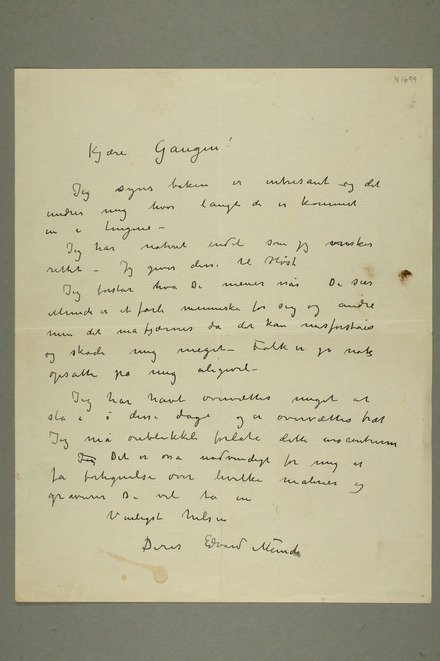 N 1699
Kjære Gaugen!
Jeg syns boken er intresant og det
undrer mig hvor langt de er kommet
in i tingene –
Jeg har noteret endel som jeg ønsker
rettet – Jeg giver disse til Høst
Jeg forstår hva De mener når De sier
Munch er et farli menneske for sig og andre
men det må fjærnes da det kan misforståes
og skade mig meget – Folk er jo nok
opsatte på mig aligevel –
Jeg har havt overvættes meget at
stå i i disse dage og er overvættes træt
Jeg må øieblikkli forlate dette
Det er osså nødvendigt for mig at
få fortegnelse over hvilke malerier og
gravurer De vil ta in
Venligst hilsen
Deres Edvard Munch